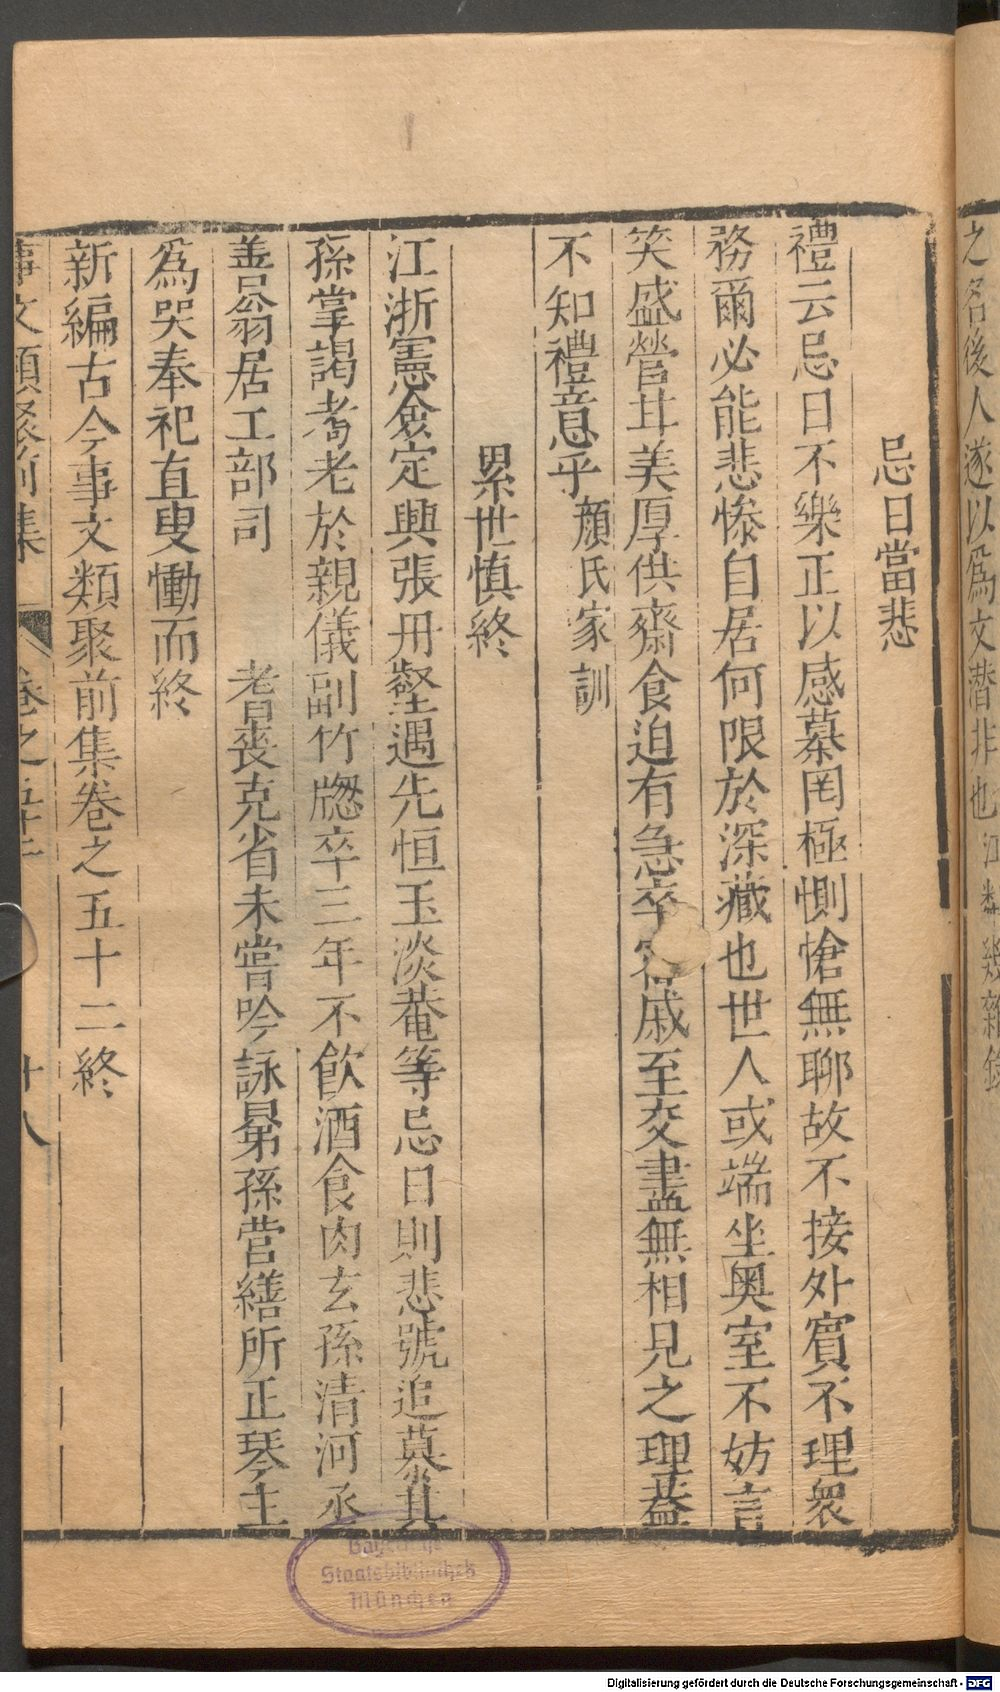 之名後人遂以爲文潛非也江鄰幾雜
忌日當悲
禮云忌日不樂正以感慕罔極惻愴無聊故不接外賓不理衆
務爾必能悲慘自居何限於深藏也世人或端坐奥室不妨言
笑盛營甘美厚供齋食迫有急卒戚至交盡無相見之理葢
不知禮意乎顏氏家訓
累世慎終
江浙憲僉定興張毌壑遇先恒玉淡菴等忌日則悲號追慕其
孫掌謁耈老於親儀副竹牕卒三年不飲酒食肉玄孫清河丞
善翁居工部司 耆喪克省未嘗吟詠曻孫營繕所正琴士
爲哭奉祀直叟慟而終
新編古今事文類聚前集卷之五十二終
事文類聚前集 卷之五十二 十八
Bayerische
Staatsbibliothek
München
Digitalisierung gefördert durch die Deutsche Forschungsgemeinschaft - DFG